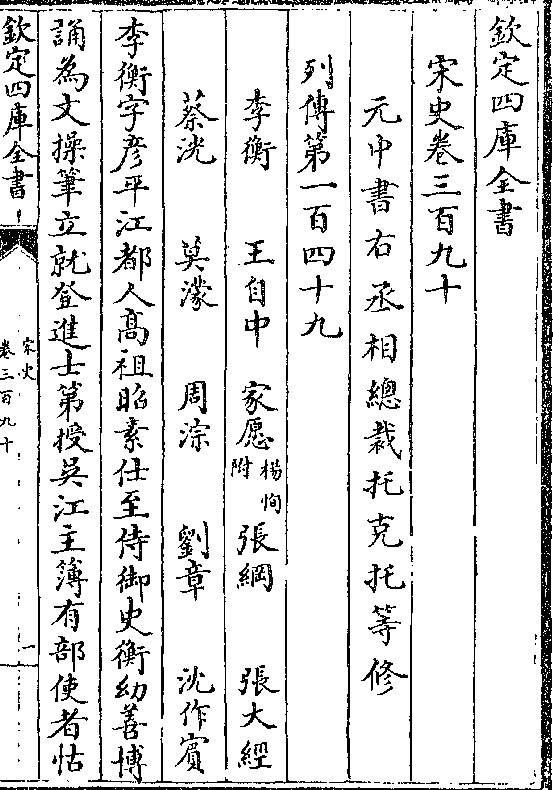 欽定四庫全書
宋史卷三百九十
元中書右丞相總裁托克托等修
列傳第一百四十九
李衡 王自中 家愿 楊恂附 張綱 張大經
蔡洸 莫濛 周淙 劉章 沈作賓
李衡字彦平江都人髙祖昭素仕至侍御史衡幼善博
誦為文操筆立就登進士第授吳江主簿有部使者怙
欽定四庫全書
宋史
卷三百九十
一